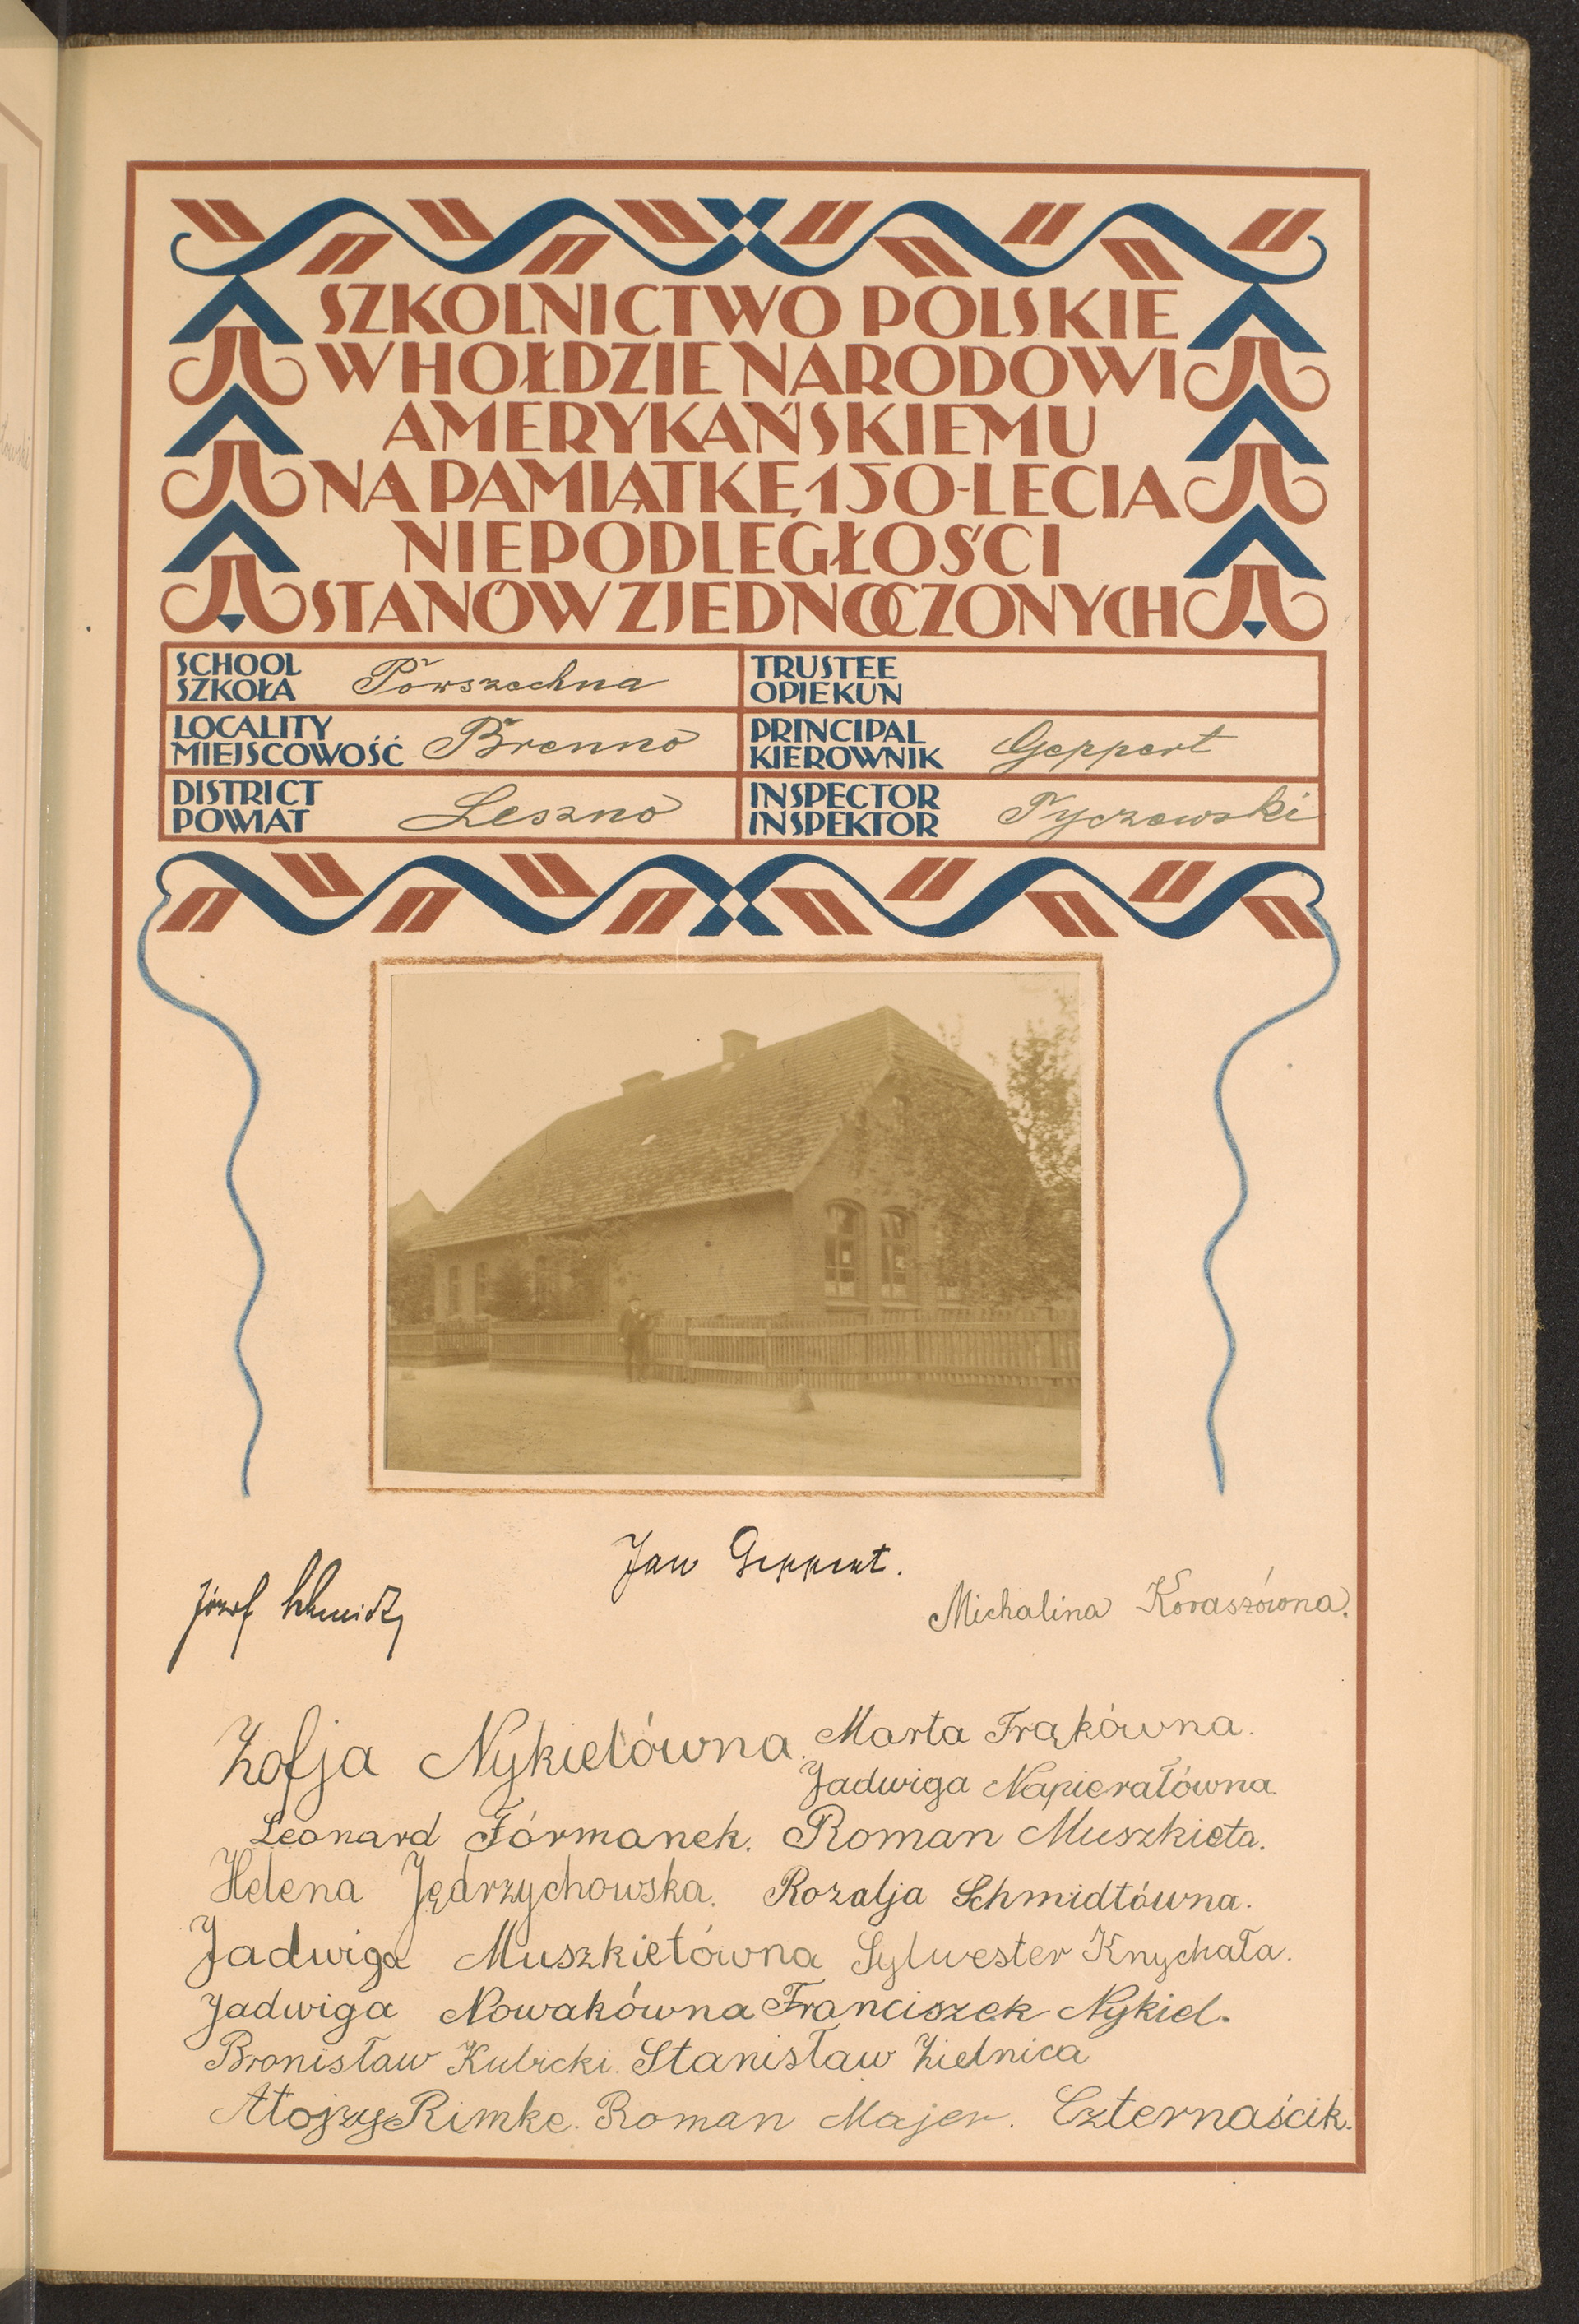 SZKOLNICTWO POLSKIE
W HOŁDZIE NARODOWI
AMERYKAŃSKIEMU
NA PAMIĄTKĘ 150-LECIA
NIEPODLEGŁOŚCI
STANÓW ZJEDNOCZONYCH
SCHOOL
SZKOŁA
Powszechna
TRUSTEE
OPIEKUN
LOCALITY
MIEJSCOWOŚĆ
Brenno
PRINCIPAL
KIEROWNIK
Geppert
DISTRICT
POWIAT
Leszno
INSPECTOR
INSPEKTOR
Tyczewski
Jan Geppert.
Józef Schmidt
Michalina Koraszówna.
Zofja Nykielówna. Marta Frąkówna.
Jadwiga Napierałówna.
Leonard Fórmanek. Roman Muszkieta.
Helena Jędrzychowska. Rozalja Schmidtówna.
Jadwiga Muszkietówna Sylwester Knychała.
Jadwiga Nowakówna Franciszek Nykiel.
Bronisław Kubicki. Stanisław Zielnica
Alojzy Rimke. Roman Majer. Czternaścik.